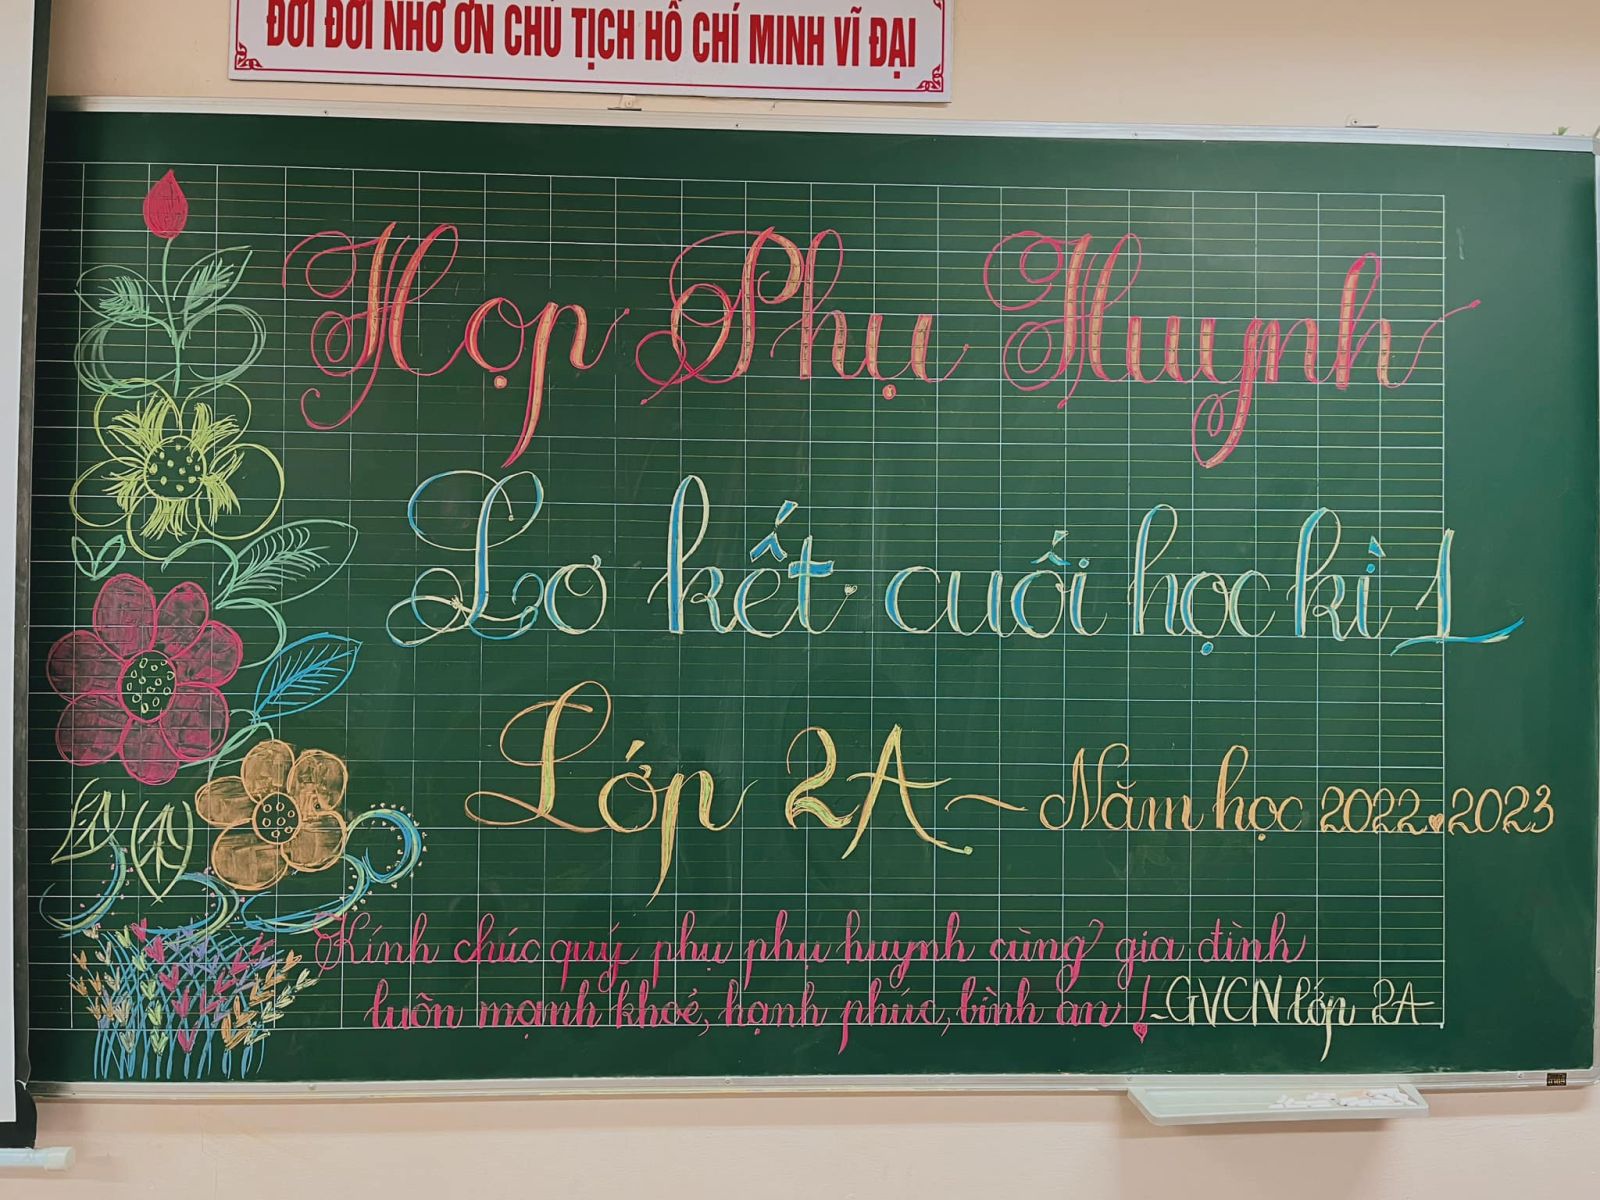 ĐỜI ĐỜI NHỚ ƠN CHỦ TỊCH HỒ CHÍ MINH VĨ ĐẠI
Họp Phụ Huynh
Sơ kết cuối học kì 1
Lớp 2A ~ Năm học 2022.2023
Kính chúc quý phụ phụ huynh cùng gia đình
luôn mạnh khoẻ, hạnh phúc, bình an! ~GVCN lớp 2A